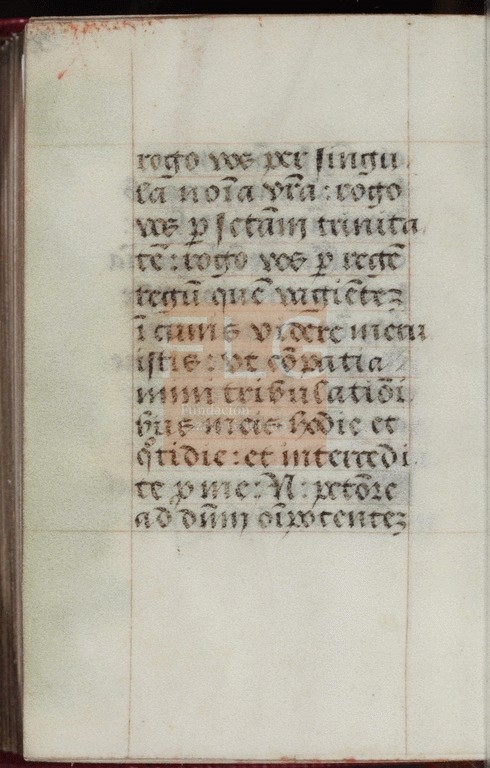 rogo vos per singu
la noīa vr̄a : rogo
vos p̱ sctām trinita
tē : rogo vos p̱ regē
regū quē vagiētez
ī cunis videre meru
istis : vt cōpatia
mini tribulatiōi
bus meis hodie et
qͦtidie : et intercedi
te ꝓ me : N : pctōre
ad dūm oīpotentez